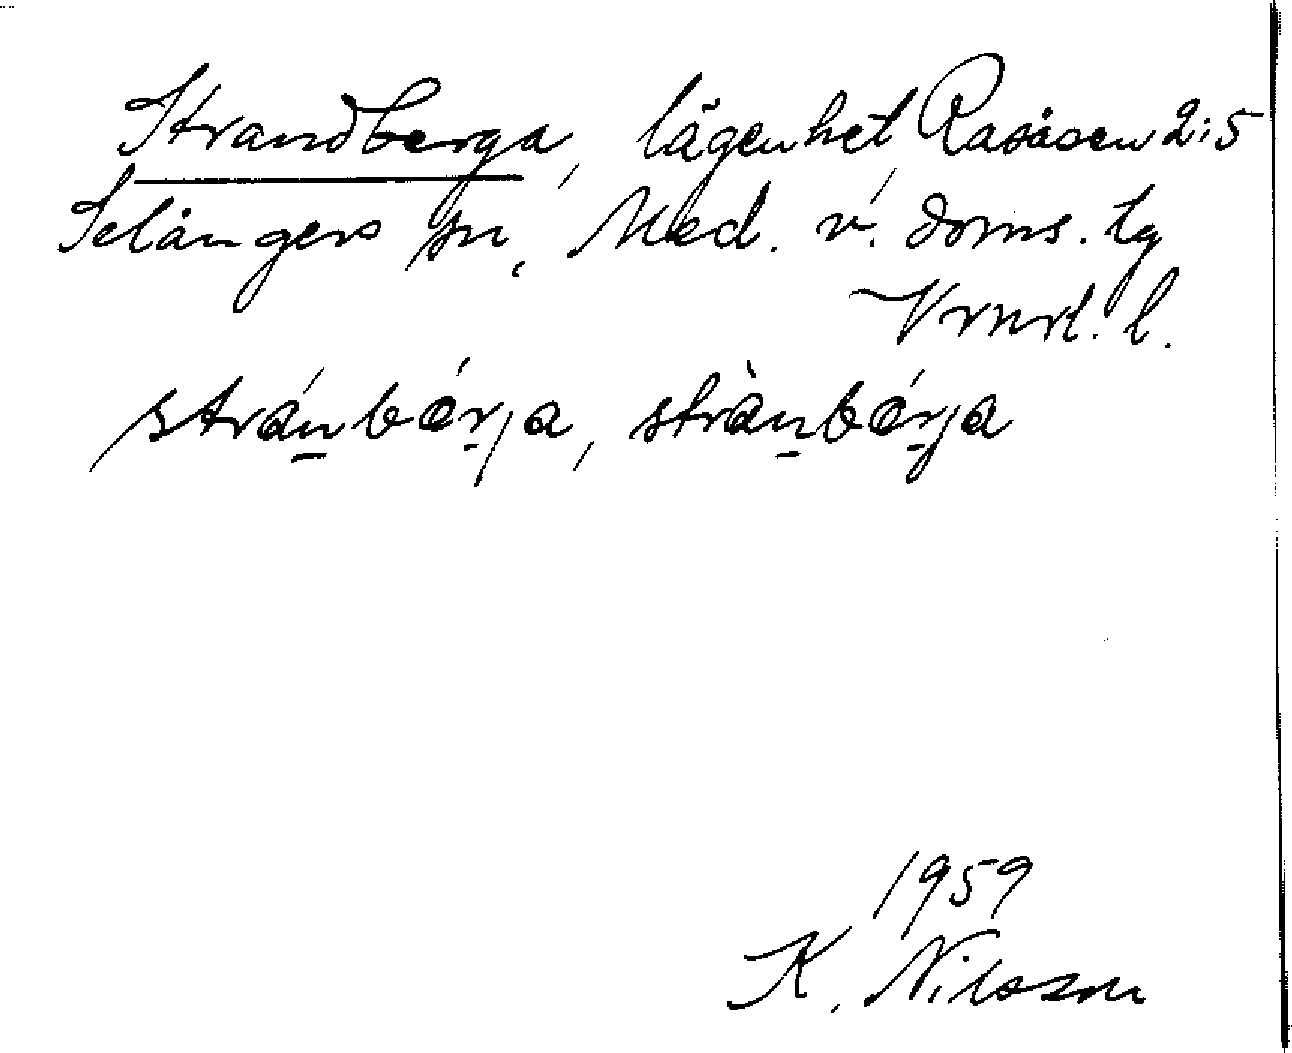 Strandberga, lägenhet, Rasåsen 2:5
Selångers sn, Med. v. doms. tg
Vrnrl. l.
stránbǽrja, strànbǽrja
1959
K. Nilsson